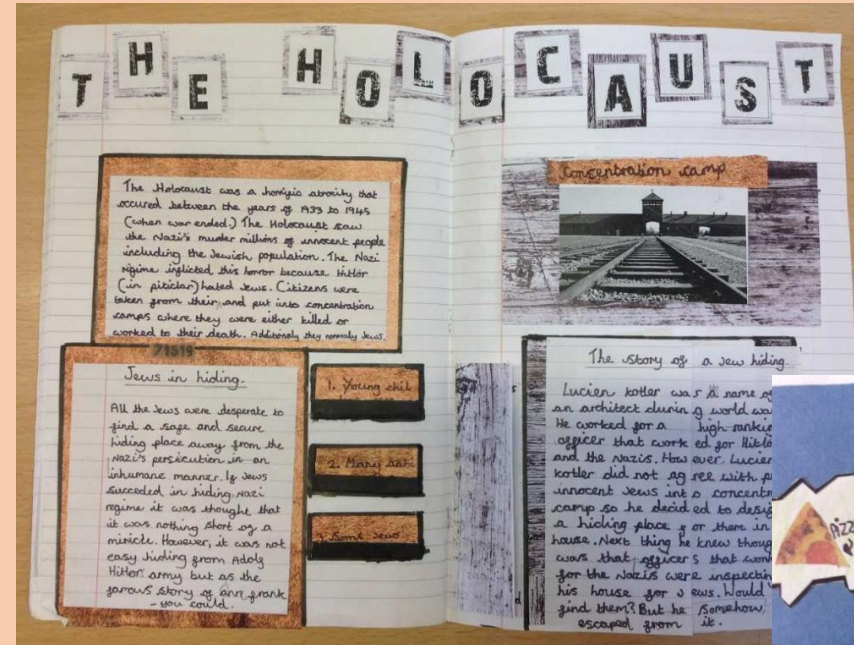 THE HOLOCAUST
The Holocaust was a horrific atrocity that
occured between the years of 1933 to 1945
(when war ended.) The Holocaust saw
the Nazi's murder millions of innocent people
including the Jewish population. The Nazi
regime inflicted this horror because Hitlor
(in piticlar) hated Jews. Citizens were
taken from their, and put into concentration
camps where they were either killed or
worked to their death. Additionely they normaly Jews.
71519
Jews in hiding.
All the Jews were desperate to
find a safe and secure
hiding place away from the
Nazi's persecution in an
inhumane manner. If Jews
succeded in hiding Nazi
regime it was thought that
it was nothing short of a
miricle. However, it was not
easy hiding from Adolf
Hitlor army but as the
farous story of ann frank
- you could.
1. Young chil
2. Many
Some Jews
Concentration camp
The story of a Jew hiding.
Lucien kotler was a name of
an architect during world wa
He worked for a high-rankin
officer that worked for Hitlo
and the Nazis. However Lucien
kotler did not agree with p
innocent Jews into concentr
camp so he decided to desig
a hiding place for them in
house. Next thing he knew thoug
was that officers that wor
for the Nazis were inspectin
his house for Jews. Would
find them? But he somehow
escaped from it.